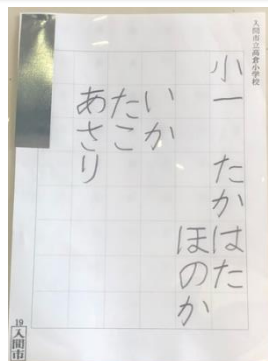 入間市立高倉小学校
小一 たかはた
ほのか
いか
たこ
あさり
19
入間市